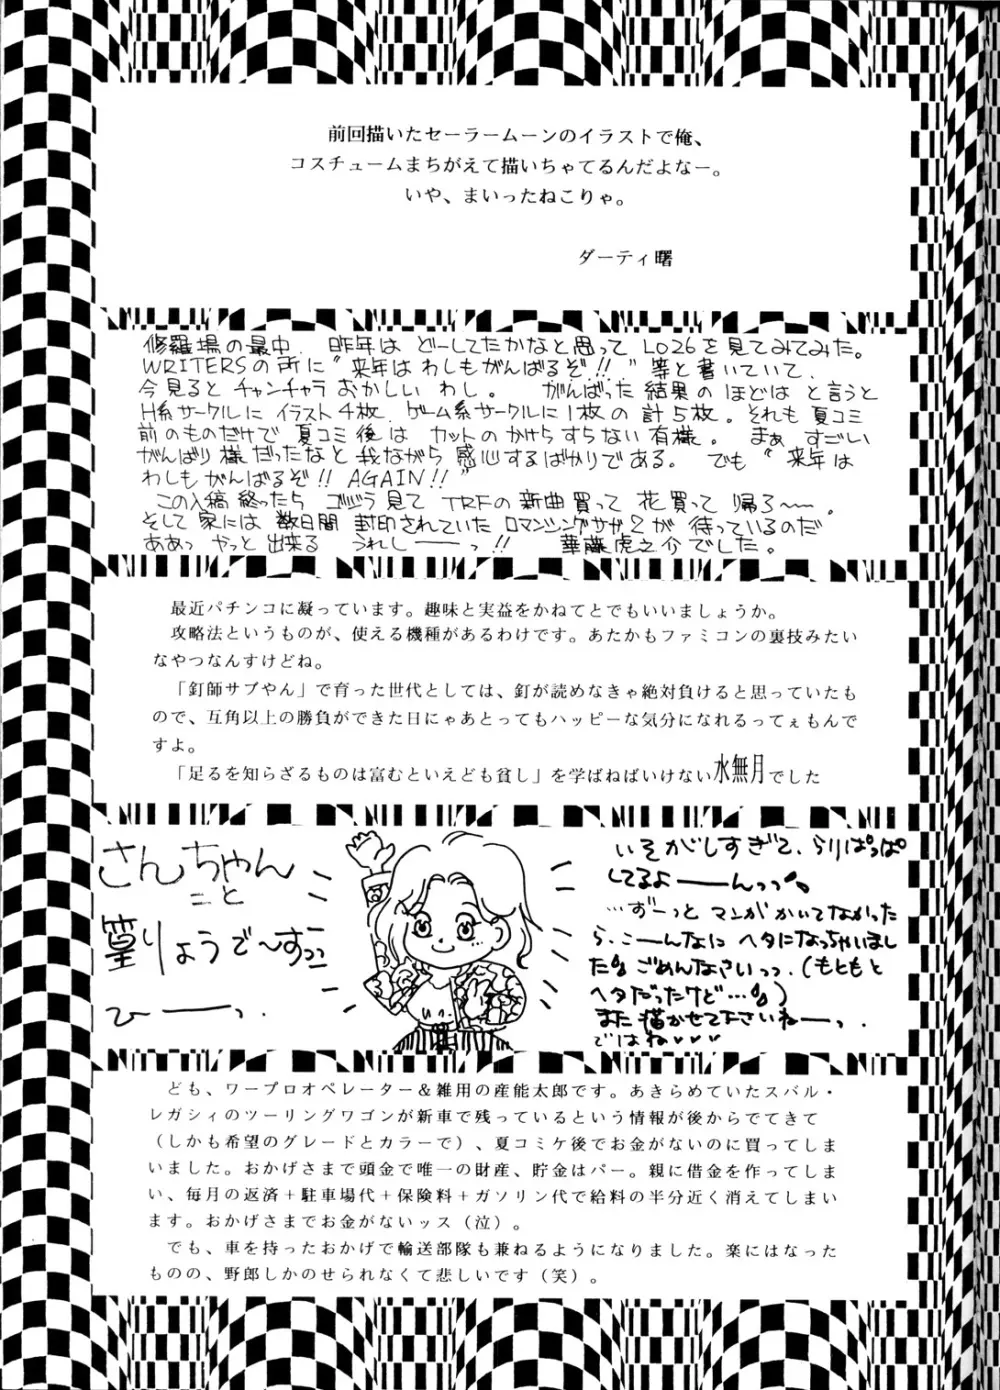 前回描いたセーラームーンのイラストで俺、
コスチュームまちがえて描いちゃてるんだよなー。
いや、まいったねこりゃ。
ダーティ曙
修羅場の最中、昨年はどーしてたかなと思ってLO26を見てみてみた。
WRITERSの所に"来年はわしもがんばるぞ!!"等と書いていて、
今見るとチャンチャラおかしいわし。がんばった結果のほどはと言うと
H系サークルにイラスト4枚、ゲーム系サークルに1枚の計5枚。それも夏コミ
前のものだけで夏コミ後はカットのかけらすらない有様。まぁすごい
がんばり様だったなと我ながら感心するばかりである。でも"来年は
わしもがんばるぞ!!AGAIN!!"
この入稿終ったらゴジラ見てTRFの新曲買って花買って帰ろ〜。
そして家には数日間封印されていたロマンシングサガ2が待っているのだ
ああっやっと出来るうれしーーっ!!華藤虎之介でした。
最近パチンコに凝っています。趣味と実益をかねてとでもいいましょうか。
攻略法というものが、使える機種があるわけです。あたかもファミコンの裏技みたい
なやつなんすけどね。
「釘師サブやん」で育った世代としては、釘が読めなきゃ絶対負けると思っていたも
ので、互角以上の勝負ができた日にゃあとってもハッピーな気分になれるってぇもんで
すよ。
「足るを知らざるものは富むといえども貧し」を学ばねばいけない水無月でした
さんちゃん
こと
篁りょうで〜すっっ
ひーーっ.
いそがしすぎて、らりぱっぱ
してるよーーんっっ
…ずーっとマンガかいてなかった
ら、こーんなにヘタになっちゃいまし
た ごめんなさいっっ.(もともと
ヘタだったけど…)
また描かせて下さいねーっ.
ではね♥♥♥
ども、ワープロオペレーター＆雑用の産能太郎です。あきらめていたスバル・
レガシィのツーリングワゴンが新車で残っているという情報が後からでてきて
（しかも希望のグレードとカラーで）、夏コミケ後でお金がないのに買ってしま
いました。おかげさまで頭金で唯一の財産、貯金はパー。親に借金を作ってしま
い、毎月の返済＋駐車場代＋保険料＋ガソリン代で給料の半分近く消えてしまい
ます。おかげさまでお金がないッス（泣）。
でも、車を持ったおかげで輸送部隊も兼ねるようになりました。楽にはなった
ものの、野郎しかのせられなくて悲しいです（笑）。